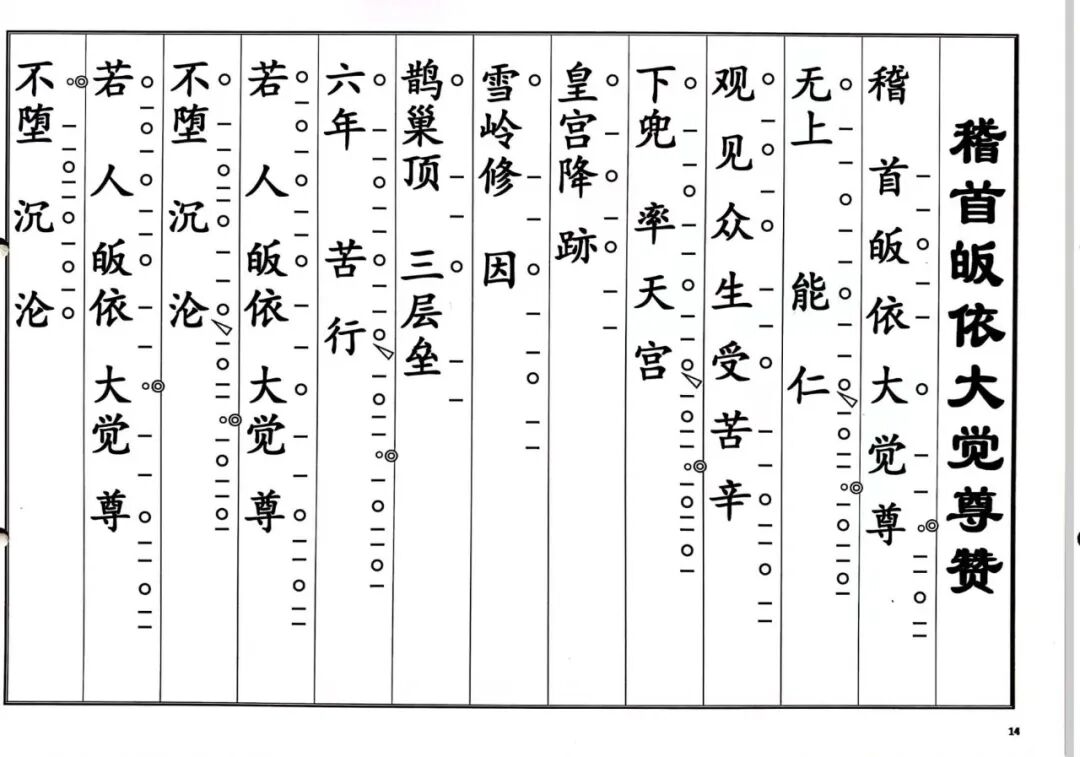 稽首皈依大觉尊赞
稽首皈依大觉尊
无上能仁
观见众生受苦辛
下兜率天宫
皇宫降跡
雪岭修因
鹊巢顶三层垒
六年苦行
若人皈依大觉尊
不堕沉沦
若人皈依大觉尊
不堕沉沦
14